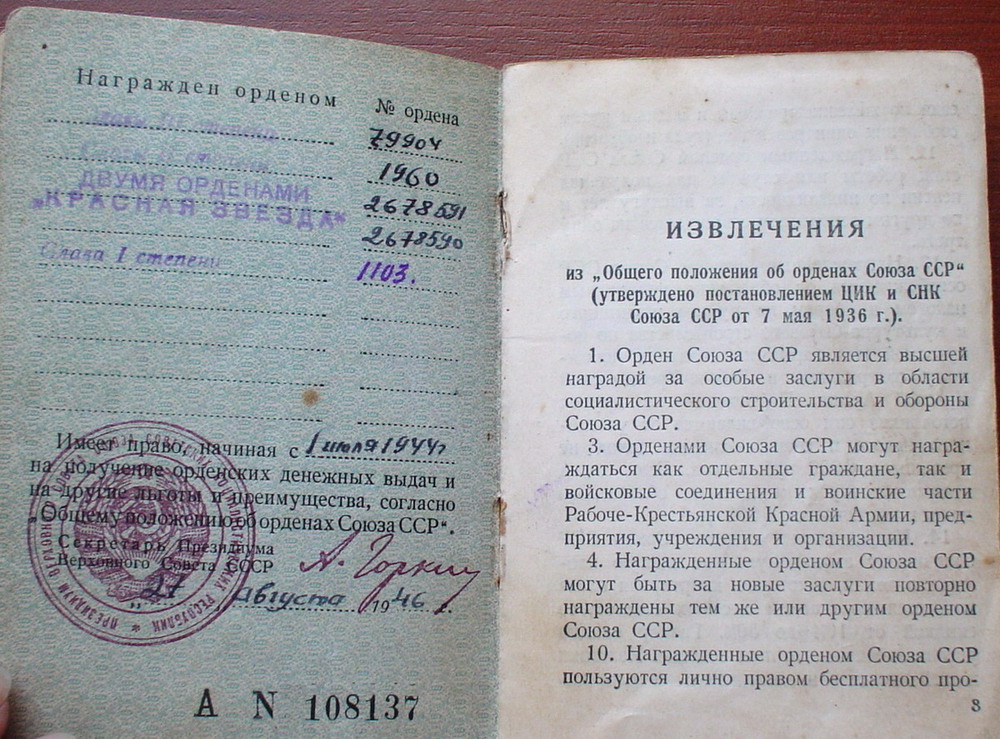 Награжден орденом
№ ордена
Слава III степени
79904
Слава II степени
1960
ДВУМЯ ОРДЕНАМИ
„КРАСНАЯ ЗВЕЗДА“
2678591
2678590
Слава I степени
1103.
Имеет право, начиная с 1 июля 1944 г
на получение орденских денежных выдач и
на другие льготы и преимущества, согласно
„Общему положению об орденах Союза ССР“.
Секретарь Президиума
Верховного Совета СССР
А. Горкин
„27 августа 1946 г.
А N 108137
ИЗВЛЕЧЕНИЯ
из „Общего положения об орденах Союза ССР“
(утверждено постановлением ЦИК и СНК
Союза ССР от 7 мая 1936 г.).
1. Орден Союза ССР является высшей
наградой за особые заслуги в области
социалистического строительства и обороны
Союза ССР.
3. Орденами Союза ССР могут награ-
ждаться как отдельные граждане, так и
войсковые соединения и воинские части
Рабоче-Крестьянской Красной Армии, пред-
приятия, учреждения и организации.
4. Награжденные орденом Союза ССР
могут быть за новые заслуги повторно
награждены тем же или другим орденом
Союза ССР.
10. Награжденные орденом Союза ССР
пользуются лично правом бесплатного про-
3